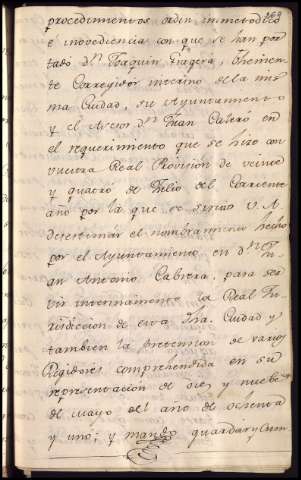 procedimientos ordin
é inovediencia con que se han por
tado Dn Joaquin Theinen
te Corregidor interino de la mis
ma Ciudad, su Ayuntamiento
y el Asesor Dn Juan Calero en
el requerimiento que se hizo con
vuestra Real Provision de veinte
y quatro de Julio del Corriente
año por la que se sirvió V. A.
desestimár el nombramiento hecho
por el Ayuntamiento en Dn Ju
an Antonio Cabrera, para ser
vir interinamente la Real Ju
risdiccion de esta Ciudad y
tambien la pretension de varios
Regidores comprehendida en su
representacion de diez y nuebe
de Mayo del año de ochenta
y uno; y mandó guardar y Cum